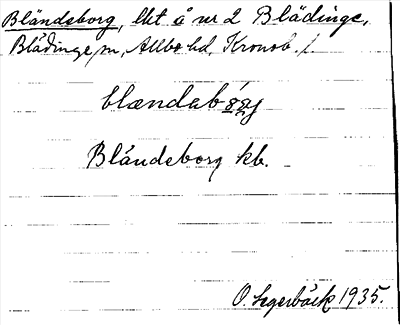 Bländeborg, lht å nr 2 Blädinge,
Blädinge sn, Allbo hd, Kronob. l.
Bländeborg kb.
O. Segerbäck 1935.